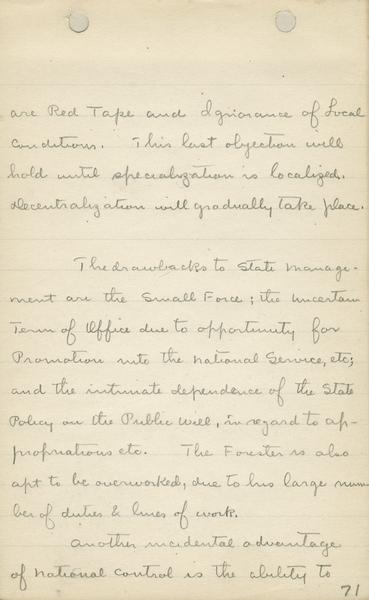 are Red Tape and Igniorance of Local
Conditions. This last objection will
hold until specialization is localized.
Decentralization will gradually take place.
The drawbacks to State Manage-
ment are the Small Force; the Uncertain
Term of Office due to opportunity for
Promotion into the National Service, etc;
and the intimate dependence of the State
Policy on the Public Will, in regard to ap-
propriations etc. The Forester is also
apt to be overworked, due to his large num
ber of duties & lines of work.
Another incidental advantage
of National Control is the ability to
71